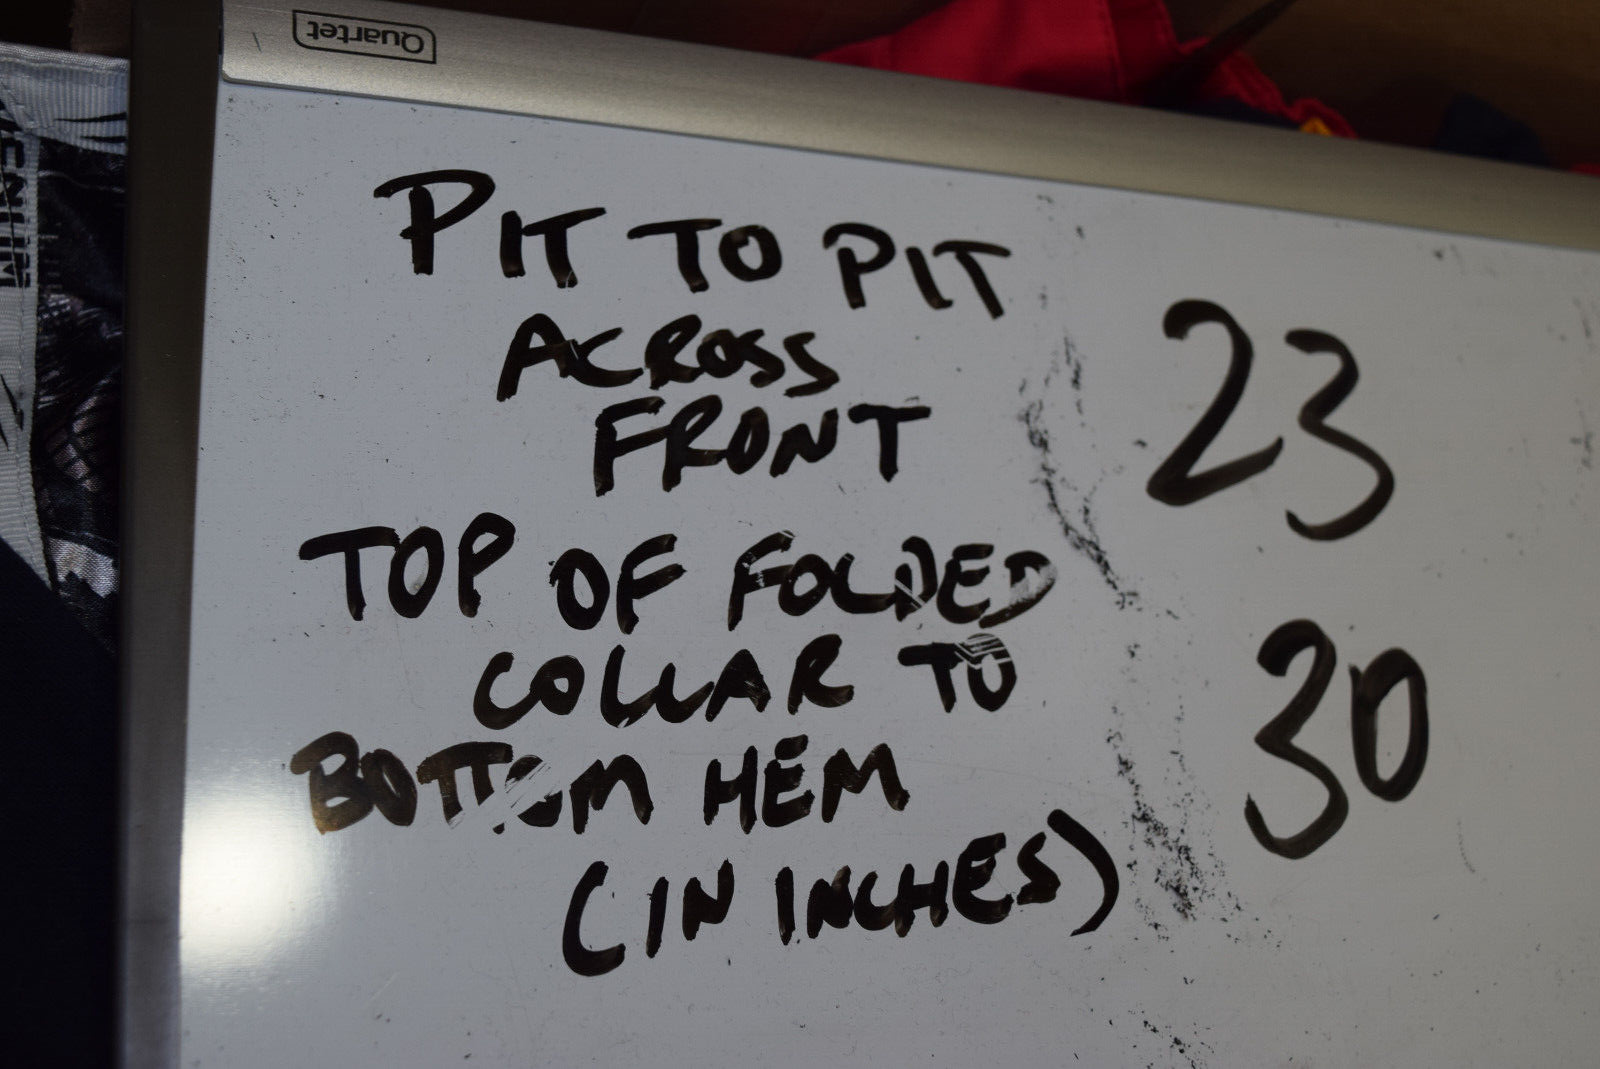 Quartet
PIT TO PIT
ACROSS
FRONT
23
TOP OF FOLDED
COLLAR TO
BOTTOM HEM
30
(IN INCHES)
VENUM